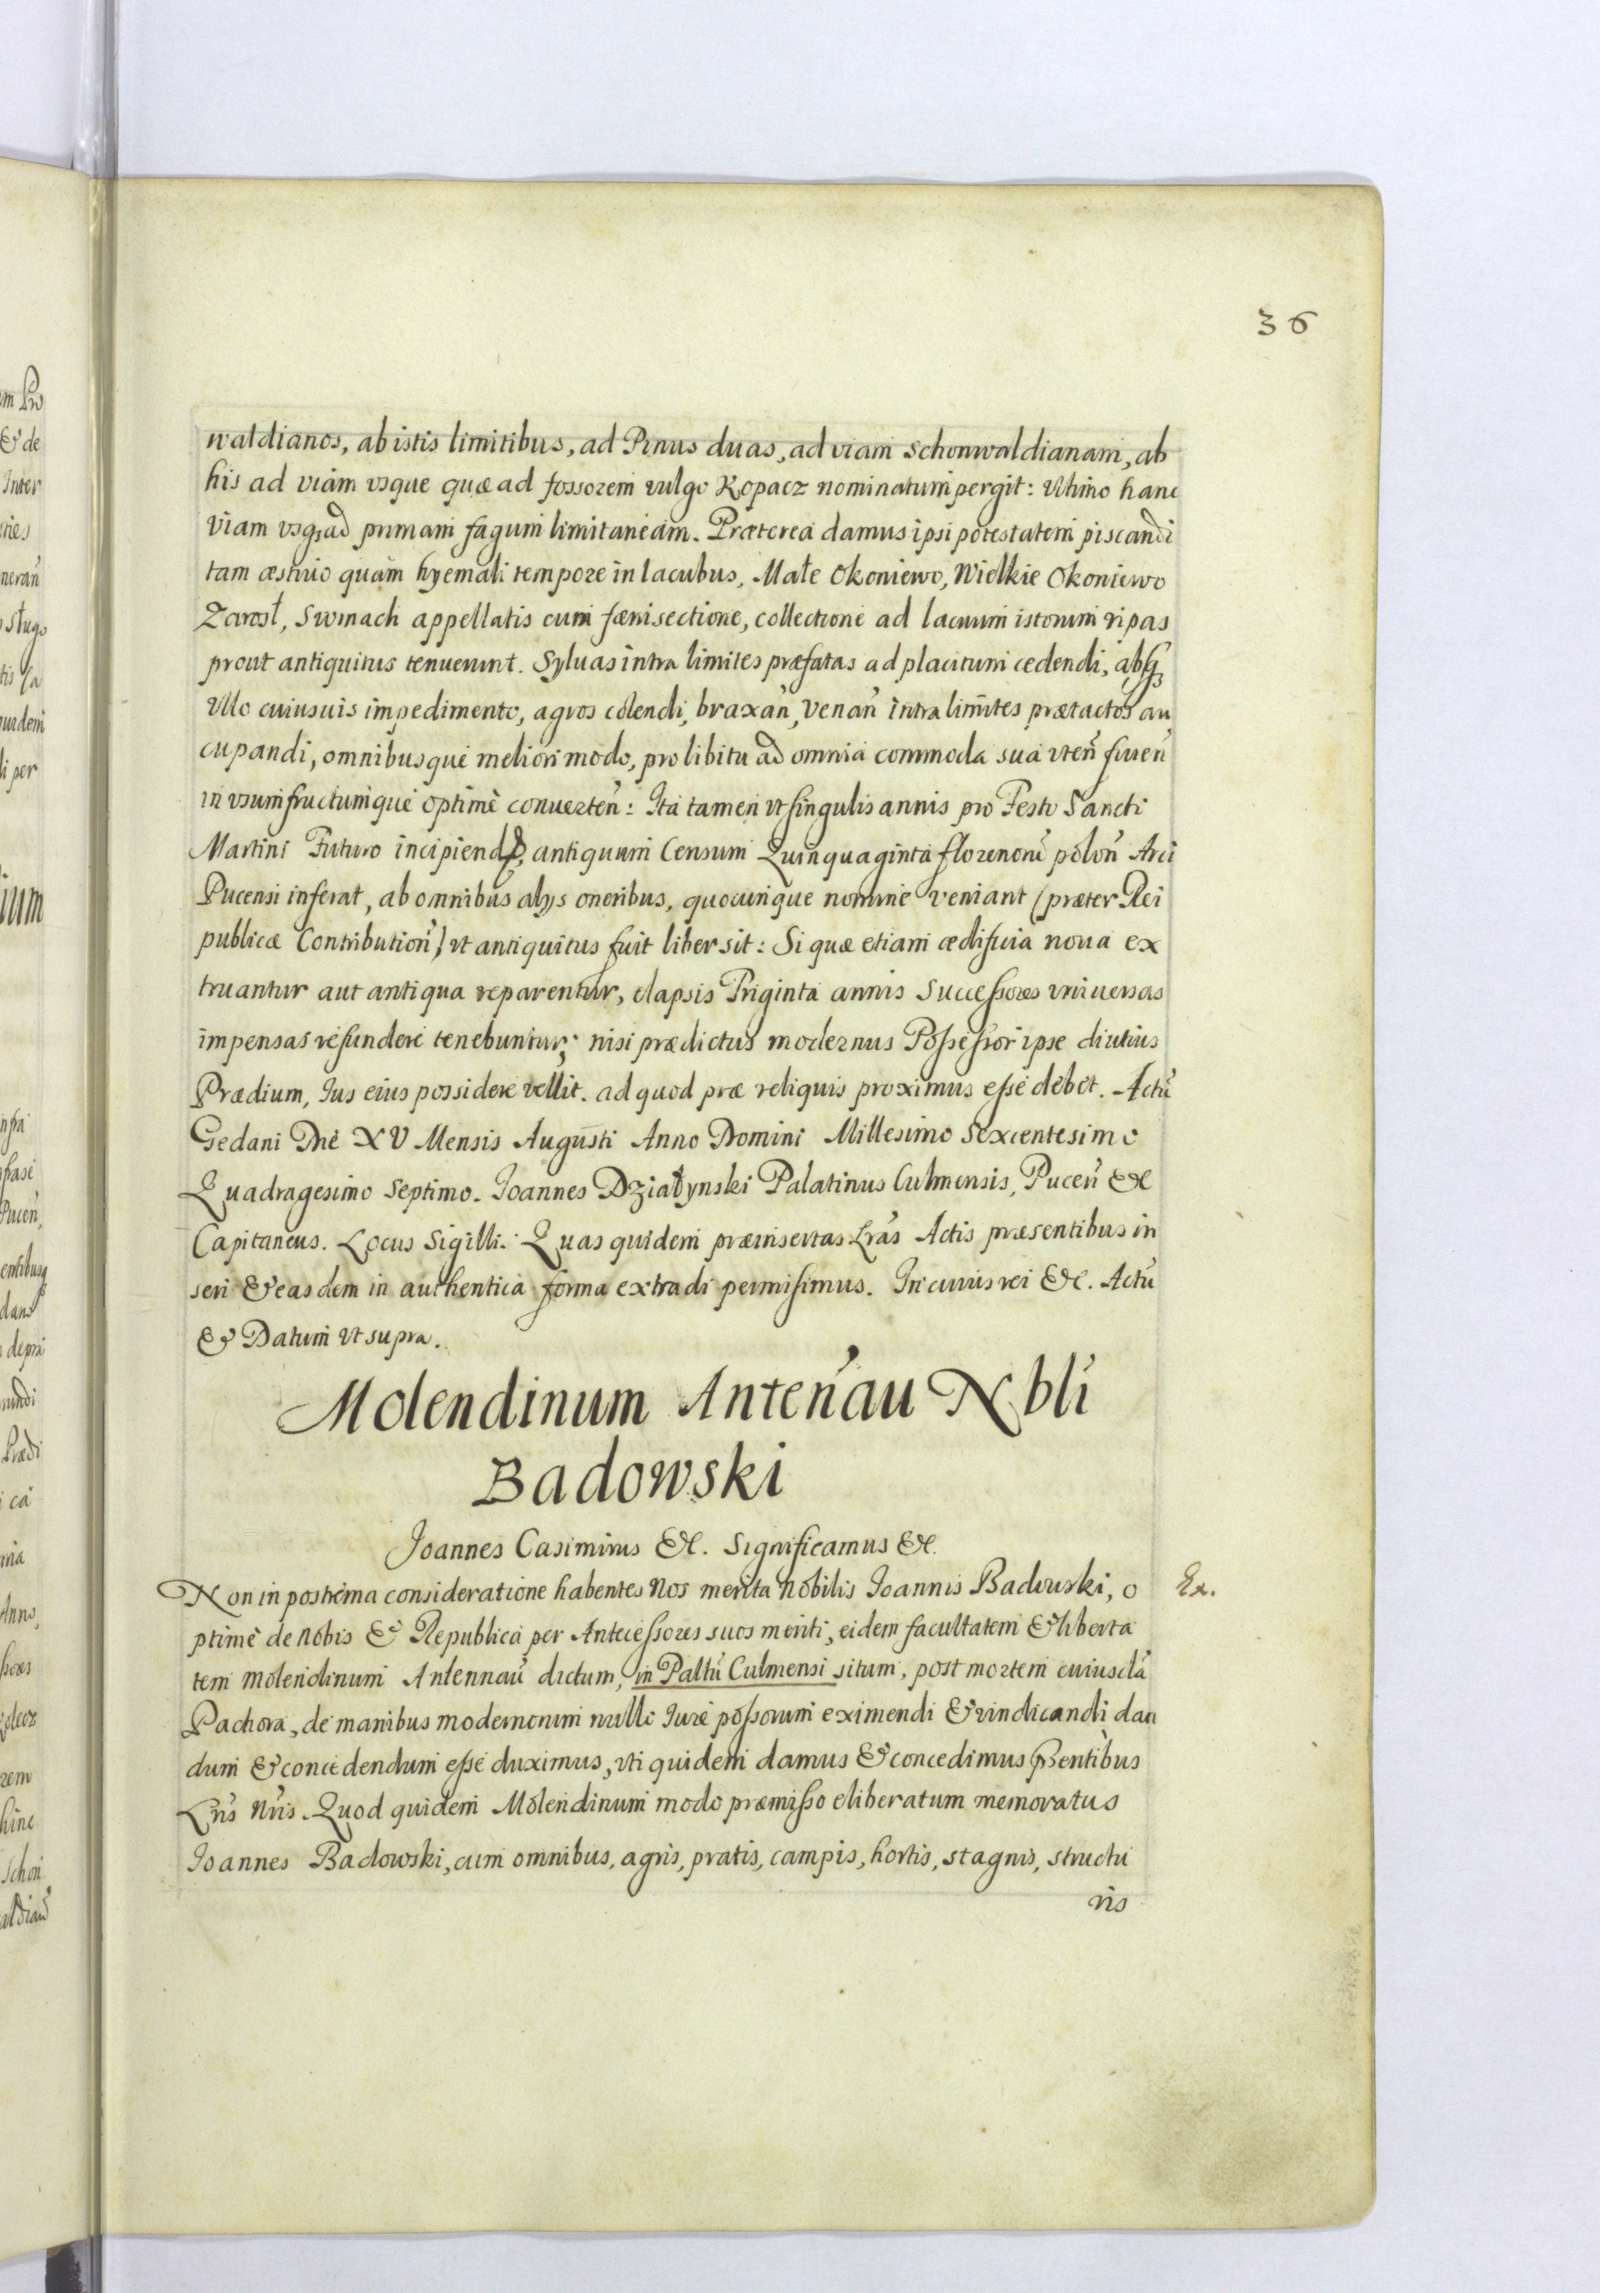 36
waldianos, ab istis limitibus, ad Pinus duas, ad viam Schonwaldianam, ab
his ad viam vsque quæ ad fossorem vulgo Kopacz nominatum pergit: Vltimo hanc
viam vsq3 ad primam fagum limitaneam. Præterea damus ipsi potestatem piscandi
tam æstiuo quàm hyemali tempore in lacubus, Małe Okoniewo, Wielkie Okoniewo
Zarosł, Swinach appellatis cum fænisectione, collectione ad lacuum istorum ripas
prout antiquitus tenuerunt. Syluas intra limites præfatas ad placitum cedendi, absq3
Vllo cuiusuis impedimento, agros colendi, braxań, venań intra limites prætactos au
cupandi, omnibusque meliori modo, pro libitu ad omnia commoda sua vteń fueń
in vsumfructumque optimè conuerteń: Ita tamen vt singulis annis pro Festo Sancti
Martini Futuro incipiendo, antiquum Censum Quinquaginta florenorū poloń Arci
Pucensi inferat, ab omnibus alijs oneribus, quocunque nomine veniant (præter Rei
publicæ Contributioń) vt antiquitus fuit liber sit: Si quæ etiam ædificia noua ex
truantur aut antiqua reparentur, elapsis Triginta annis Successores vniuersas
impensas refundere tenebuntur; nisi prædictus modernus Possessor ipse diutius
Prædium, Ius eius possidere vellit. ad quod præ reliquis proximus esse debet. Actū
Gedani Die XV Mensis Augusti Anno Domini Millesimo Sexcentesimo
Quadragesimo Septimo. Joannes Działynski Palatinus Culmensis, Puceń &c
Capitaneus. Locus Sigilli. Quas quidem præinsertas Lrās Actis præsentibus in
seri & easdem in authentica forma extradi permisimus. In cuius rei &c. Actū
& Datum vt supra.
Molendinum Anteńau Nbli
Badowski
Joannes Casimirus &c. Significamus &c.
Non in postrema consideratione habentes Nos merita Nobilis Joannis Badowski, o
Ex.
ptimè de Nobis & Republica per Antecessores suos meriti, eidem facultatem & liberta
tem Molendinum Antennaū dictum, in Paltū Culmensi situm, post mortem cuiusdā
Pachora, de manibus modernorum nullo Iure possorum eximendi & vindicandi dan
dum & concedendum esse duximus, vti quidem damus & concedimus pſentibus
Lris Nris. Quod quidem Molendinum modo præmisso eliberatum memoratus
Joannes Badowski, cum omnibus, agris, pratis, campis, hortis, stagnis, structu
ris